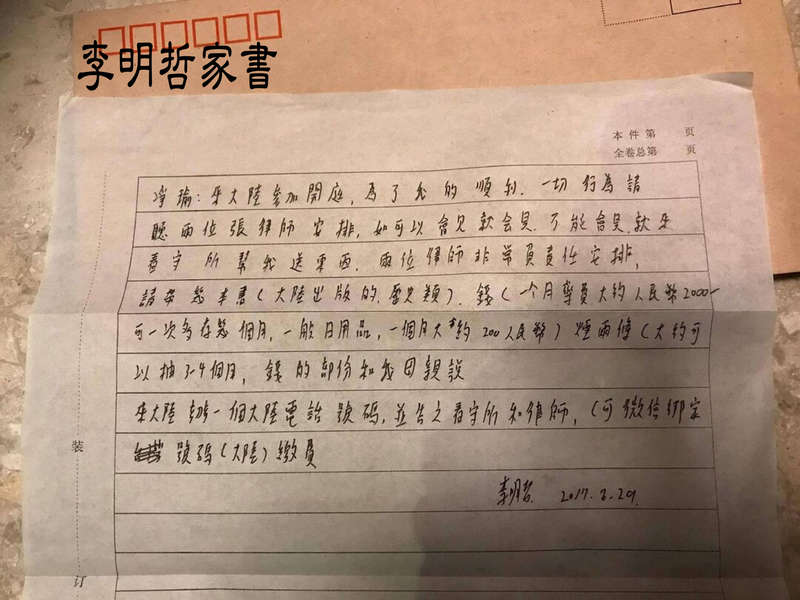 李明哲家書
本件第 页
全卷总第 页
淨瑜：來大陸參加開庭，為了我的順利．一切行為請
聽兩位張律師安排，如可以會見就会見．不能會見．就來
看守所幫我送東西．兩位律師非常負責任安排，
請帶幾本書（大陸出版的．歷史類）．錢（一个月 大約人民幣2000-
可一次多存幾個月，一般日用品，一個月大約200人民幣）煙兩條（大約可
以抽3-4個月，錢的部份和我母親說
來大陸 一個大陸電話號碼，並告之看守所和律師，（可微信綁定
號碼（大陸）繳費
李明哲 2017.8.29.
装
订